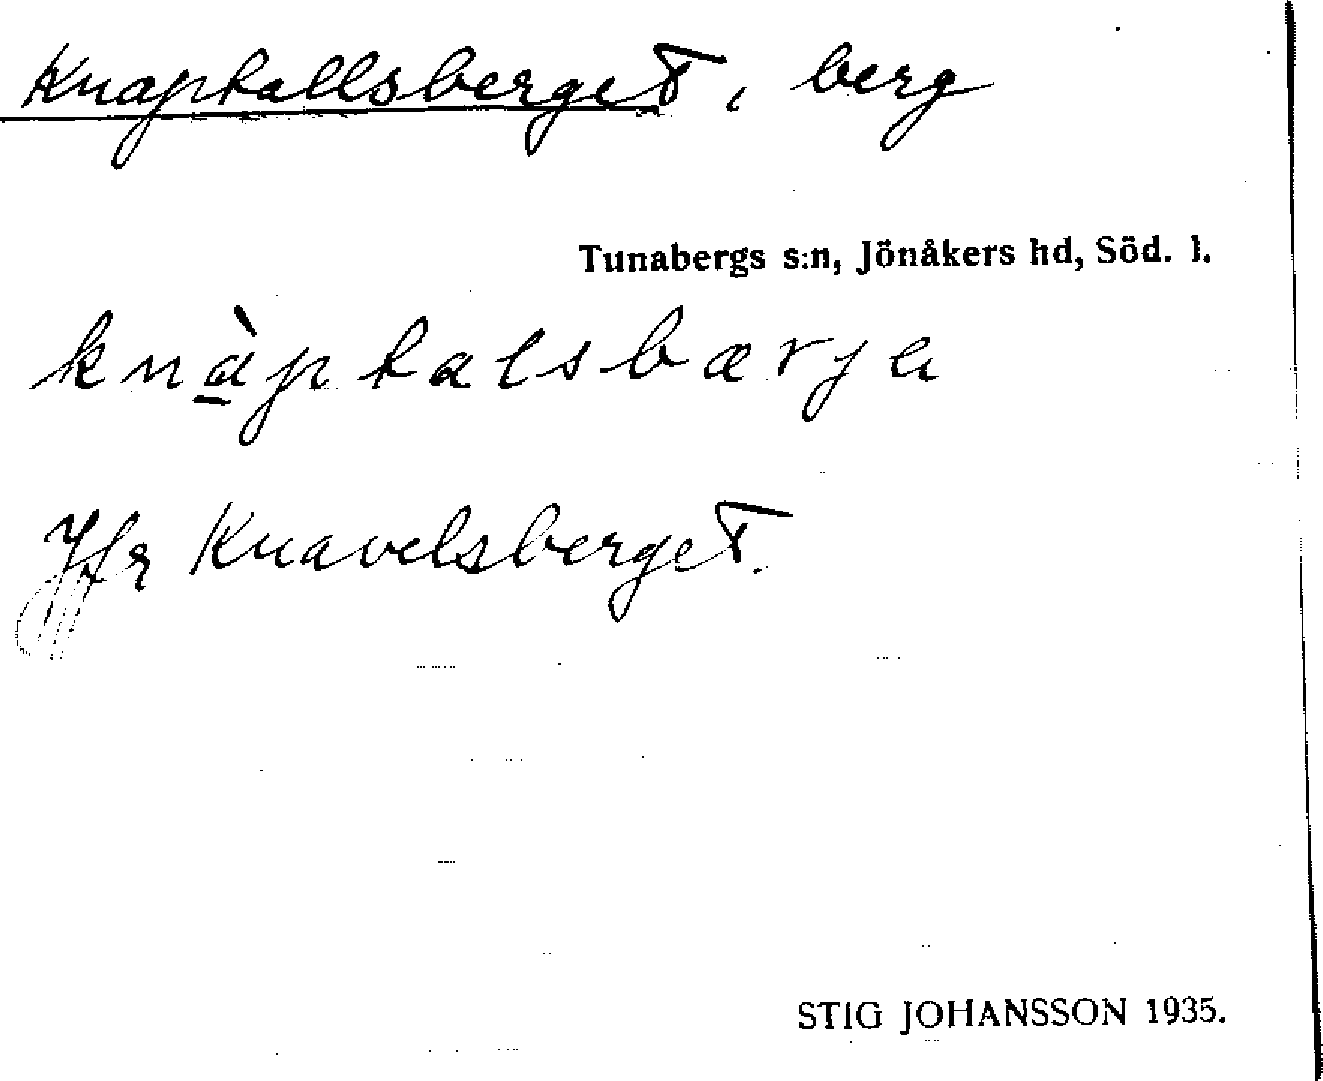 Knapkallsberget, berg
Tunabergs s:n, Jönåkers hd, Söd. l.
knàpkalsbærja
Jfr Knavelsberget.
STIG JOHANSSON 1935.